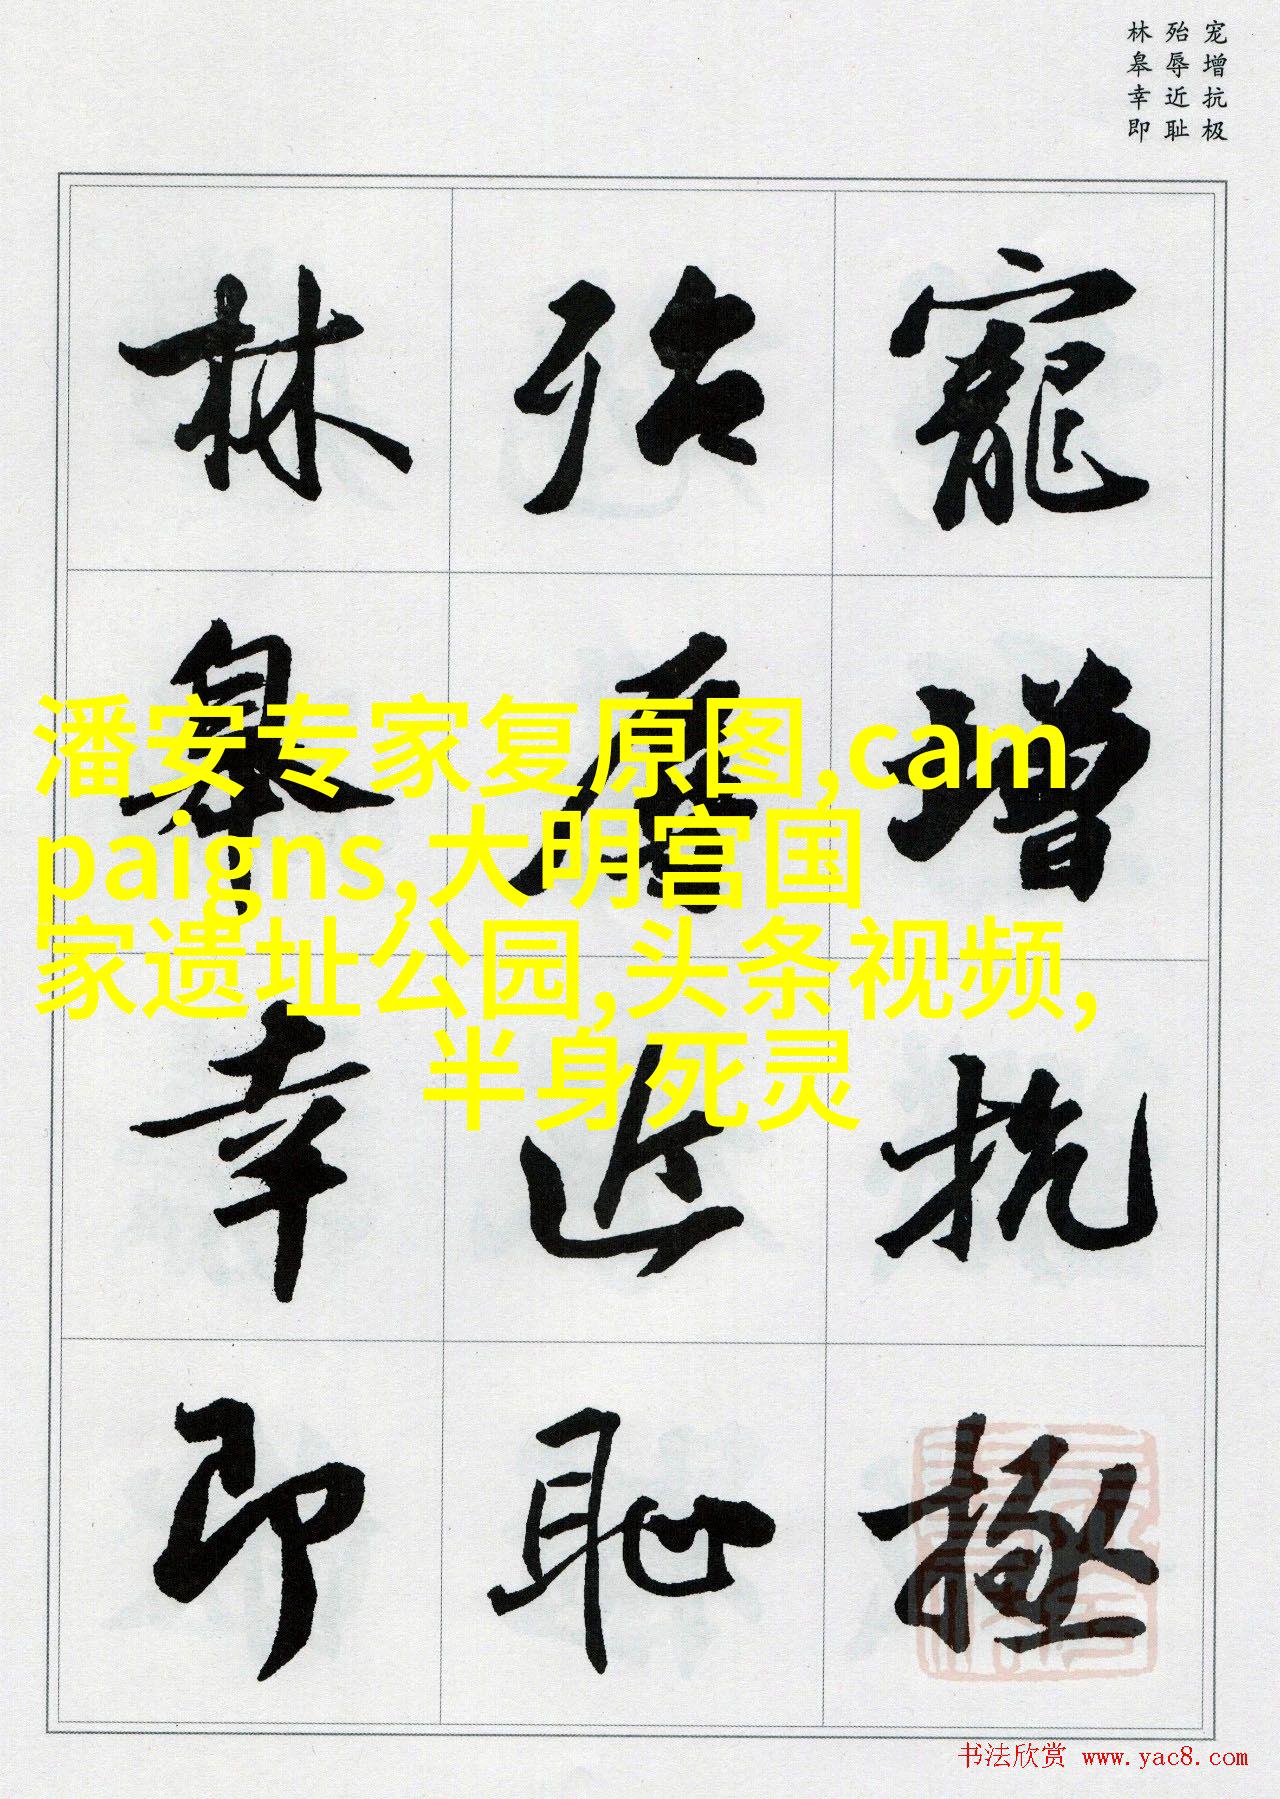 宠增抗极
殆辱近耻
林皋幸即
寵增抗極
殆辱近恥
林皋幸即
潘安专家复原图,cam
paigns,大明宫国
家遗址公园,头条视频,
半身死灵
书法欣赏 www.yac8.com